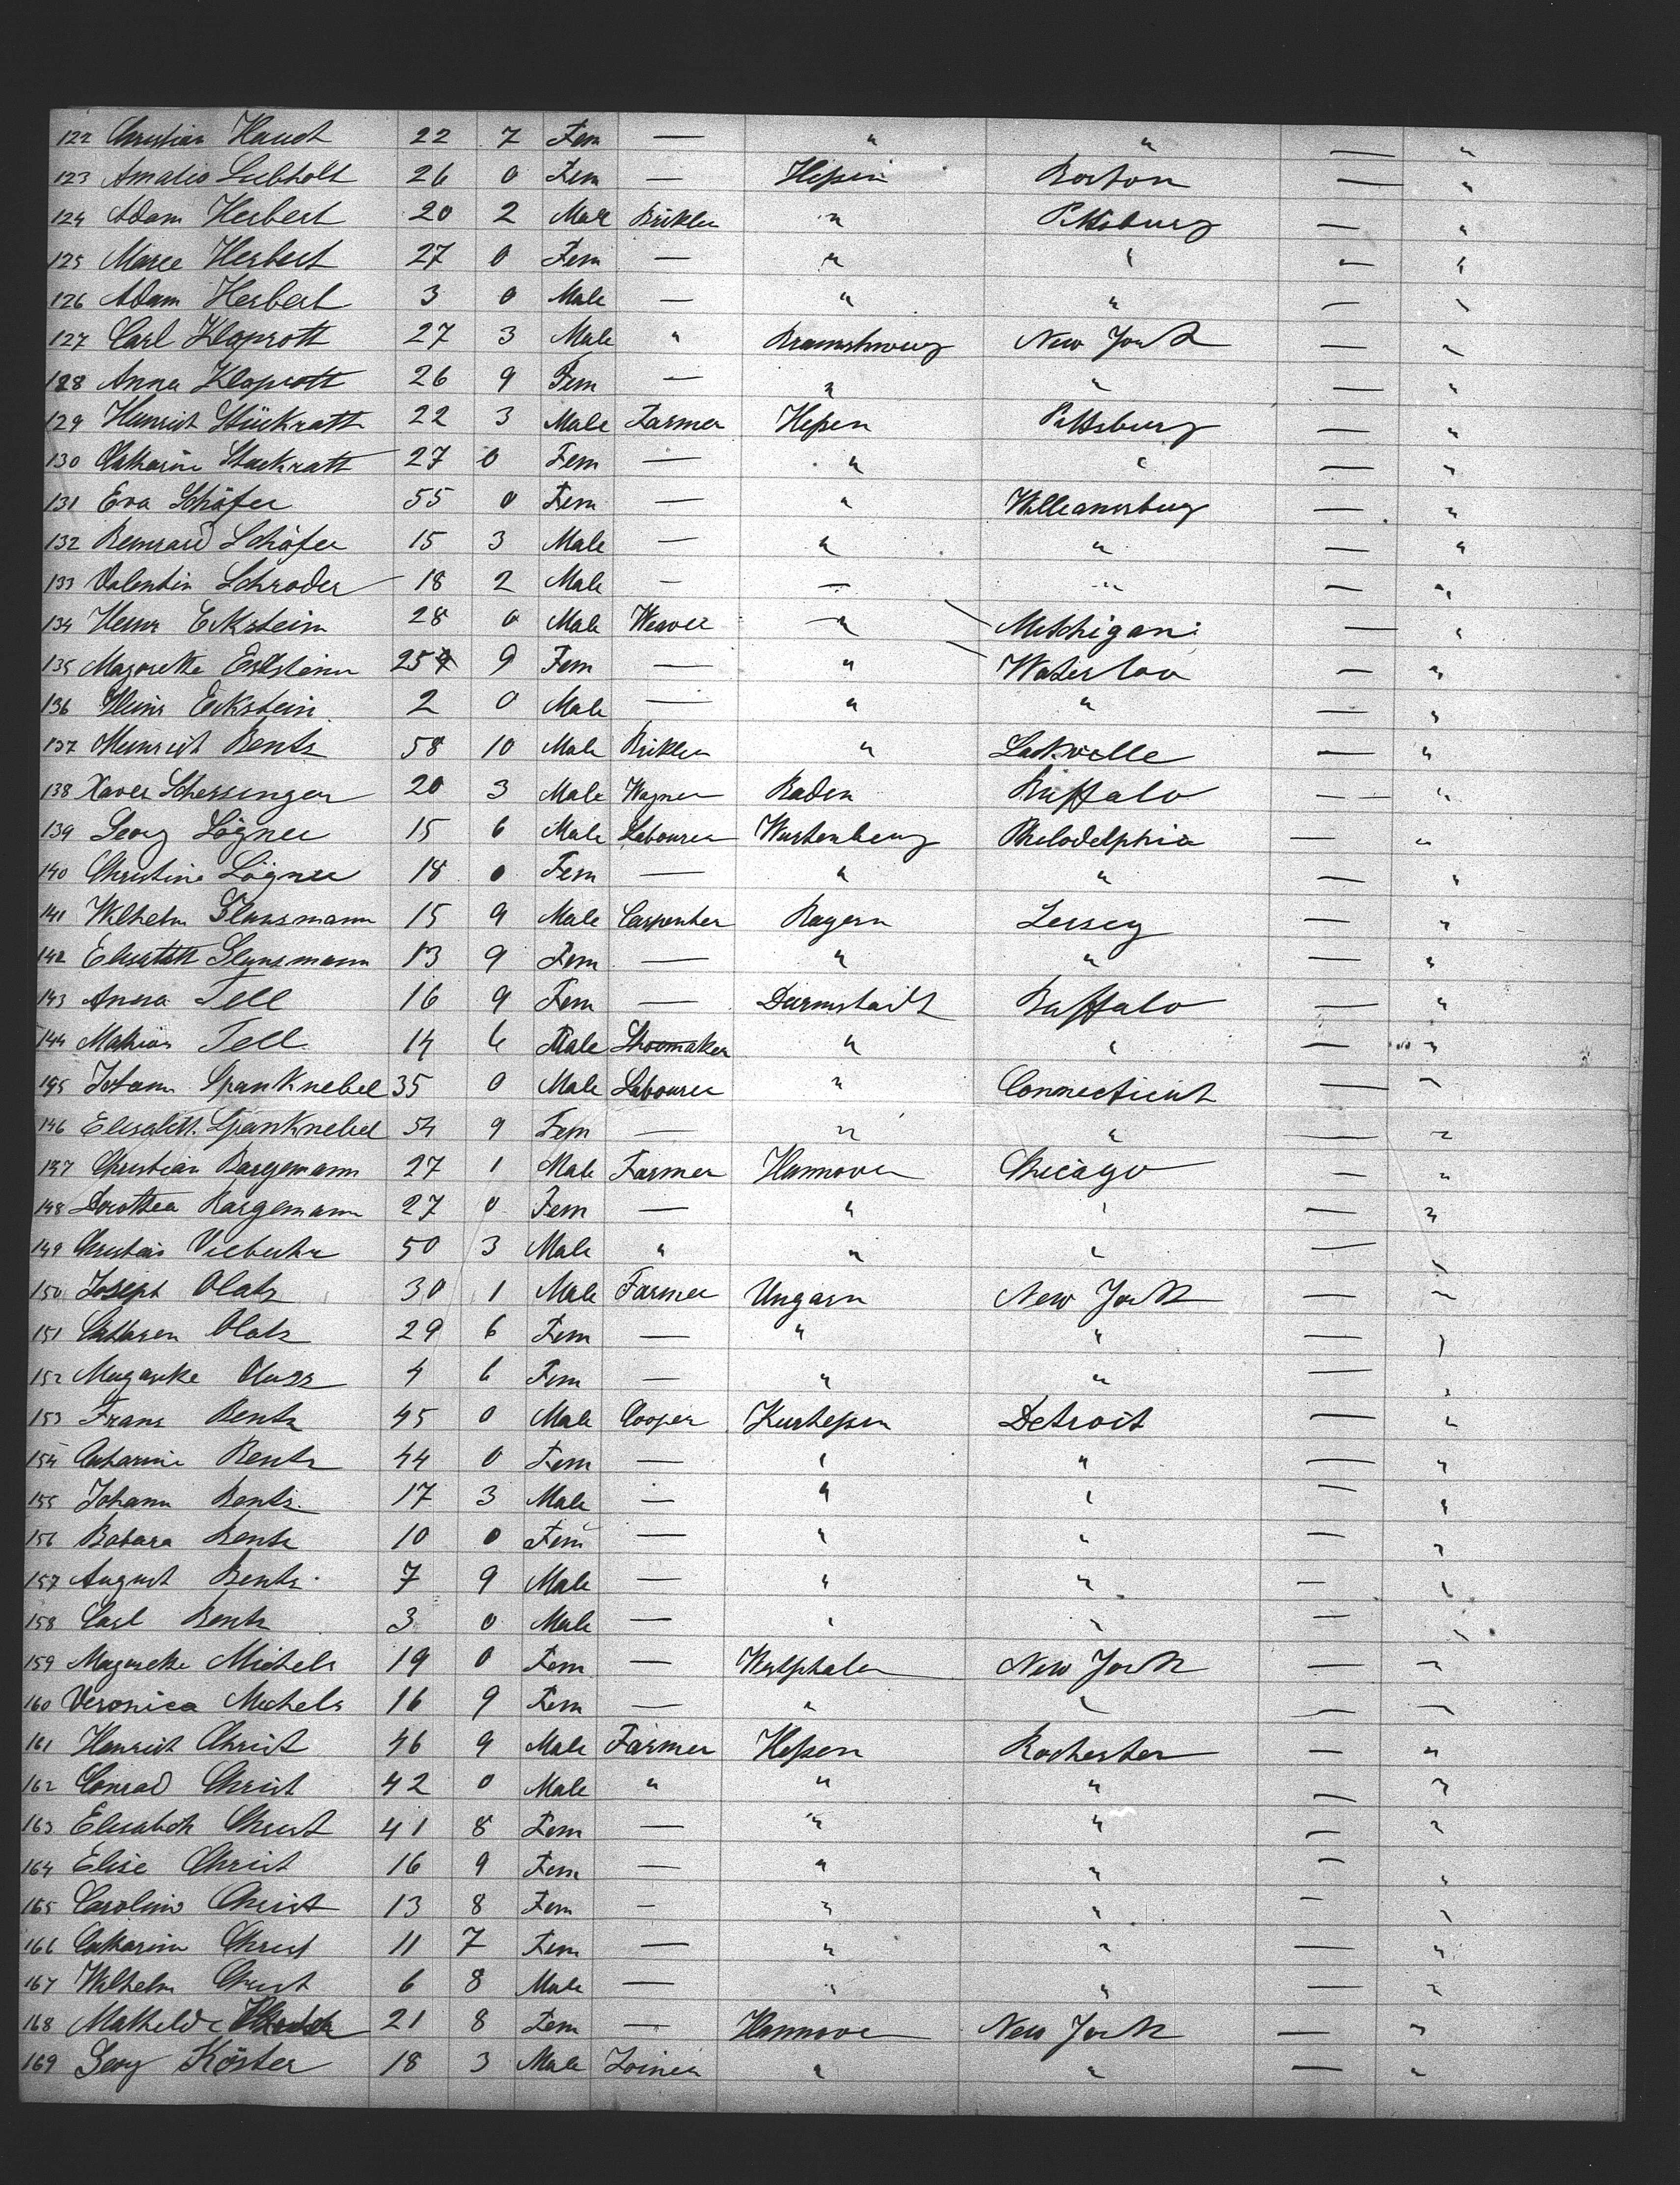 122 Christian Haudt 22 7 Fem — " " — "
123 Amalio Liebholt 26 0 Fem — Heßen Boston — "
124 Adam Herbert 20 2 Male Brikler " Pittsburg — "
125 Maree Herbert 27 0 Fem — " " — "
126 Adam Herbert 3 0 Male — " " — "
127 Carl Kloprott 27 3 Male " Braunshweig New York — "
128 Anna Kloprott 26 9 Fem — " " — "
129 Heinrich Stückratt 22 3 Male Farmer Heßen Pittsburg — "
130 Catharine Stuckratt 27 0 Fem — " " — "
131 Eva Schäfer 55 0 Fem — " Williamsburg — "
132 Bernard Schäfer 15 3 Male — " " — "
133 Valentin Schroder 18 2 Male — — " — "
134 Heinr Eckstein 28 0 Male Weaver " Mitchigan "
135 Magarethe Eckstein 25 9 Fem — " Waterloo — "
136 Heinr Eckstein 2 0 Male — " " — "
137 Heinrich Bentz 58 10 Male Brikler " Lackville — "
138 Xaver Schessinger 20 3 Male Wagner Baden Buffalo — "
139 Georg Lögner 15 6 Male Labourer Wurtenberg Philodelphia — "
140 Christine Lögner 18 0 Fem — " " — "
141 Wilhelm 15 9 Male Carpenter Bayern Jersey — "
142 Elisabeth 13 9 Fem — " " — "
143 Anna Tell 16 9 Fem — Darmstadt Buffalo — "
144 Mathias Tell 14 6 Male Shoemaker " " — "
145 Johann Spanknebel 35 0 Male Labourer " Connecticut — "
146 Elisabeth Spanknebel 54 9 Fem — " " — "
147 Christian Bargemann 27 1 Male Farmer Hannover Chicago — "
148 Dorothea Bargemann 27 0 Fem — " " — "
149 Christian Viebuhr 50 3 Male " " " — "
150 Joseph Olatz 30 1 Male Farmer Ungarn New York — "
151 Catharen Olatz 29 6 Fem — " " — "
152 Magarethe 4 6 Fem — " " — "
153 Franz Bentz 45 0 Male Cooper Kurheßen Detroit — "
154 Catharine Bentz 44 0 Fem — " " — "
155 Johann Bentz 17 3 Male — " " — "
156 Babara Bentz 10 0 Fem — " " — "
157 August Bentz 7 9 Male — " " — "
158 Carl Bentz 3 0 Male — " " — "
159 Magarethe Michels 19 0 Fem — Westphalen New York — "
160 Veronica Michels 16 9 Fem — " " — "
161 Heinrich Christ 46 9 Male Farmer Heßen Rochester — "
162 Conrad Christ 42 0 Male " " " — "
163 Elisabeth Christ 41 8 Fem — " " — "
164 Elise Christ 16 9 Fem — " " — "
165 Caroline Christ 13 8 Fem — " " — "
166 Catharine Christ 11 7 Fem — " " — "
167 Wilhelm Christ 6 8 Male — " " — "
168 Mathilde 21 8 Fem — Hannover New York — "
169 Georg Köster 18 3 Male Joiner " " — "